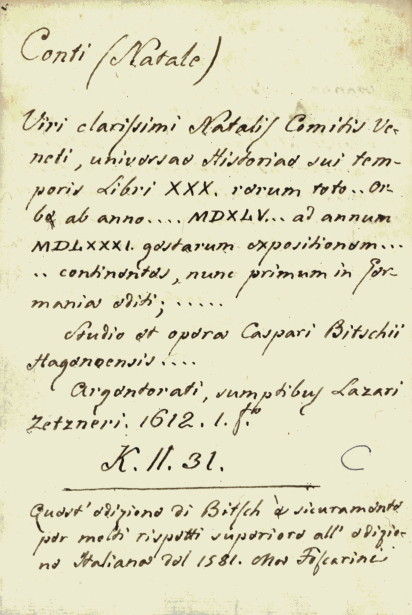 Conti (Natale)
Viri clarissimi Natalis Comitis Ve-
neti, universae Historiae sui tem-
poris Libri XXX. rerum toto .. Or-
be ab anno .... MDXLV... ad annum
MDLXXXI. gestarum expositionem ...
.. continentes, nunc primum in Ger-
mania editi; .....
Studio et opera Caspari Bitschii
Hagenoensis ....
Argentorati, sumptibus Lazari
Zetzneri. 1612. 1. f.to
K. II. 31.
C
Quest' edizione di Bitsch è sicuramente
per molti rispetti superiore all' edizio-
ne Italiana del 1581. Foscarini